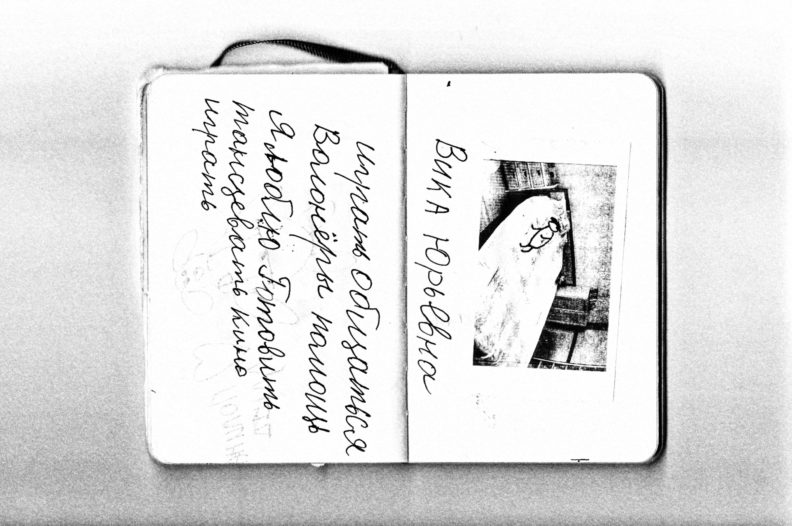 Вика Юрьевна
играть общаться
Валонёры памощь
Я люблю Готовить
танцевать кино
играть